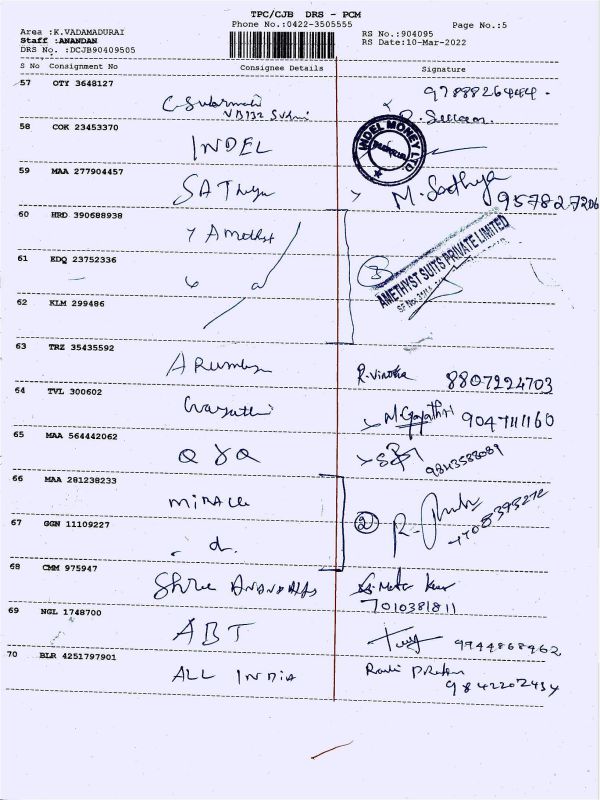 TPC/CJB DRS - PCM
Phone No.:0422-3505555
Page No.:5
Area :K.VADAMADURAI
Staff :ANANDAN
DRS No. :DCJB90409505
RS No.:904095
RS Date:10-Mar-2022
S No Consignment No Consignee Details Signature
57 OTY 3648127
97888264444.
58 COK 23453370
INDEL
INDEL MONEY LTD
59 MAA 277904457
SAThya M. Sathya 9578277206
60 HRD 390688938
Amethst
61 EDQ 23752336
3
AMETHYST SUITS PRIVATE LIMITED
62 KLM 299486
63 TRZ 35435592
8807224703
64 TVL 300602
M. Gayathri 9047111160
65 MAA 564442062
9843588089
66 MAA 281238233
MiRACLe
67 GGN 11109227
2
68 CMM 975947
Shree
7010381811
69 NGL 1748700
ABT 9944868962
70 BLR 4251797901
ALL INDiA
9842202434